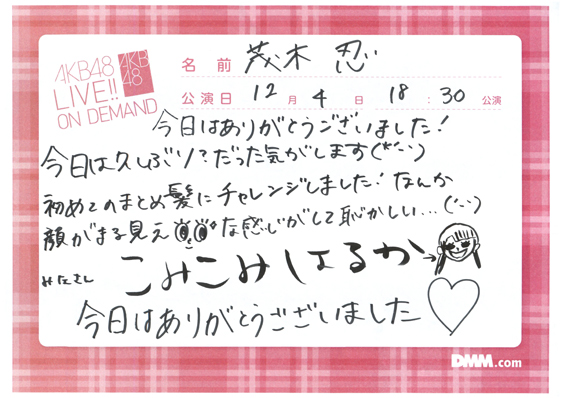 AKB48
LIVE!!
ON DEMAND
AKB
48
名 前 茂木 忍
公演日 12 月 4 日 18 : 30 公演
今日はありがとうございました!
今日は久しぶり?だった気がします
初めてのまとめ髪にチャレンジしました!なんか
顔がまる見え な感じがして恥かしい…
みなさん
こみこみはるか→
今日はありがとうございました
DMM.com